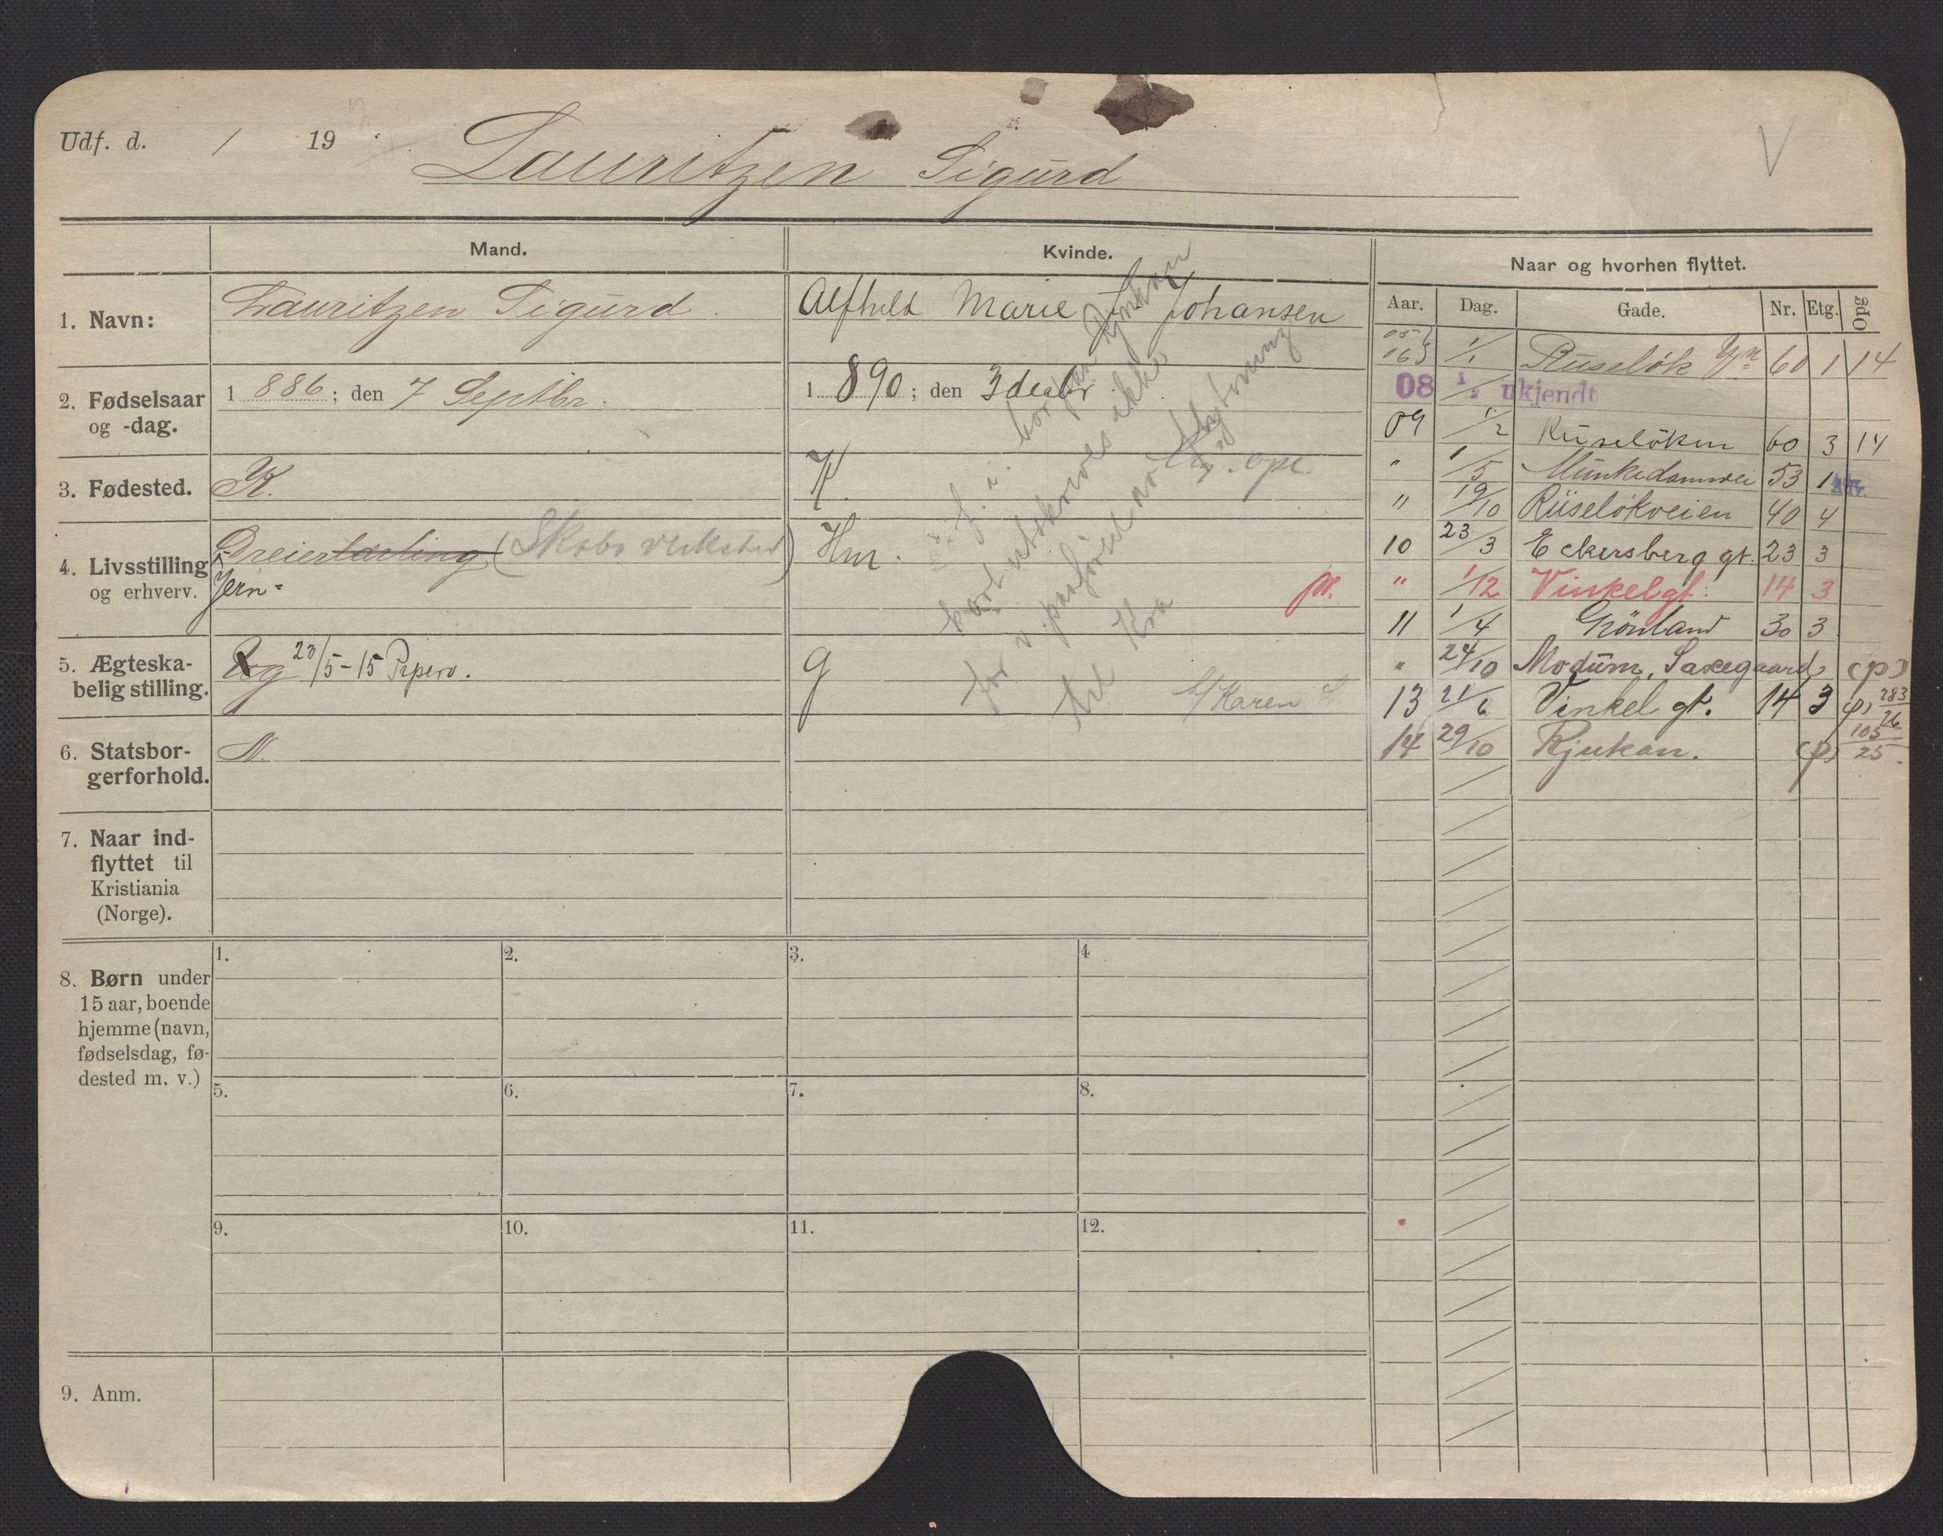 Udf. d. / 19
Lauritzen Sigurd
V
Mand.
Kvinde.
Naar og hvorhen flyttet.
Aar. Dag. Gade. Nr. Etg. Opg
1. Navn:
Lauritzen Sigurd.
Alfhild Marie f. Johansen
2. Fødselsaar
og -dag.
1886; den 7 Septbr.
1890; den 3 decbr
3. Fødested.
K.
K.
4. Livsstilling
og erhverv.
Dreierlærling (Skabo verksted)
Jern-
Hur.
5. Ægteska-
belig stilling.
Ug 23/5-15 Piperv.
g
6. Statsbor-
gerforhold.
N.
7. Naar ind-
flyttet til
Kristiania
(Norge).
8. Børn under
15 aar, boende
hjemme (navn,
fødselsdag, fø-
dested m. v.)
1. 2. 3. 4
5. 6. 7. 8.
9. 10. 11. 12.
9. Anm.
f. i. bor paa Rjukan
kort utskrives ikke
for v. paaført
til Kra
Karen
05
06 1/1 Ruseløk 60 1 14
08 1/2 ukjendt
09 1/2 Ruseløkvn 60 3 14
" 1/5 Munkedamsvei 53 1
" 19/10 Rüseløkveien 40 4
10 23/3 Eckersberg gt. 23 3
" 1/12 Vinkelgt. 14 3
11 1/4 Grönland 30 3
" 24/10 Modum, Saxegaard, (p)
13 21/6 Vinkel gt. 14 3 (p) 283
26
14 29/10 Rjukan. (p) 105
25.